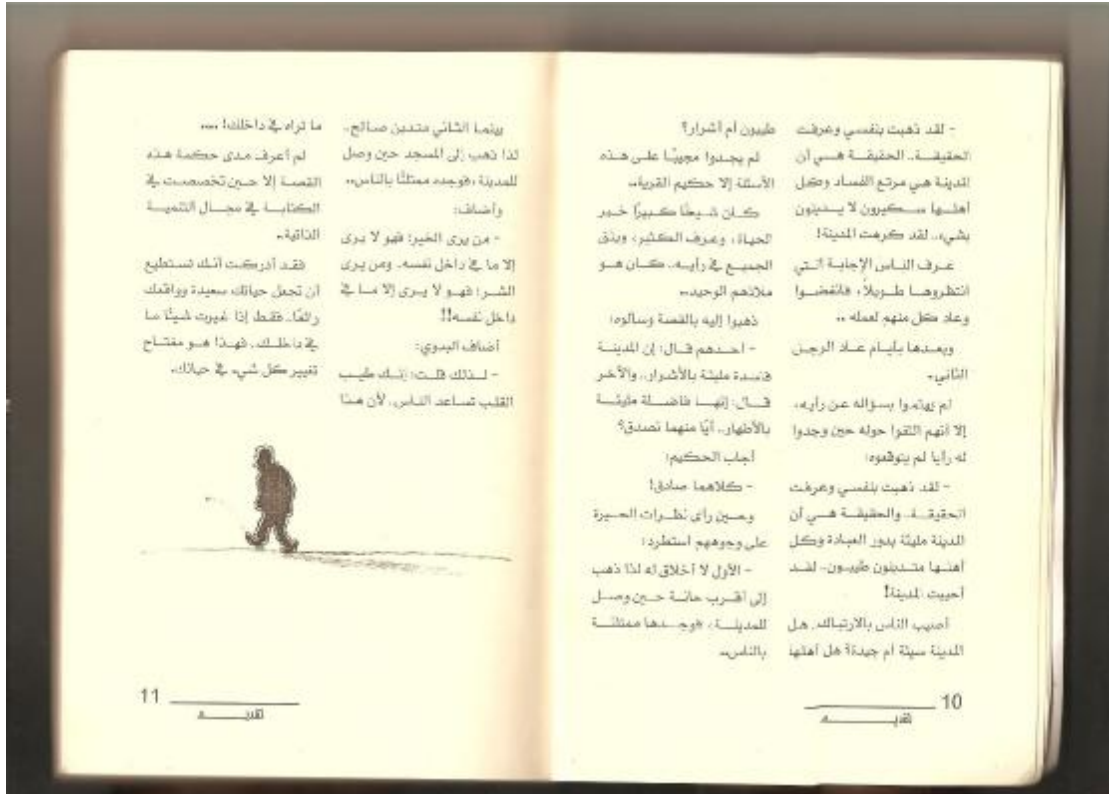 - لقد ذهبت بنفسي وعرفت
الحقيقة.. الحقيقة هي أن
المدينة هي مرتع الفساد وكل
أهلها سكيرون لا يدينون
بشيء.. لقد كرهت المدينة!
عرف الناس الإجابة التي
انتظروها طويلاً، فانفضوا
وعاد كل منهم لعمله ..
وبعدها بأيام عاد الرجل
الثاني..
لم يهتموا بسؤاله عن رأيه،
إلا أنهم التفوا حوله حين وجدوا
له رأيا لم يتوقعوه:
- لقد ذهبت بنفسي وعرفت
الحقيقة.. والحقيقة هي أن
المدينة مليئة بدور العبادة وكل
أهلها متدينون طيبون.. لقد
أحببت المدينة!
أصيب الناس بالارتباك. هل
المدينة سيئة أم جيدة؟ هل أهلها
طيبون أم أشرار؟
لم يجدوا مجيبًا على هذه
الأسئلة إلا حكيم القرية..
كان شيخًا كبيرًا خبر
الحياة، وعرف الكثير، ويثق
الجميع في رأيه.. كان هو
ملاذهم الوحيد..
ذهبوا إليه بالقصة وسألوه:
- أحدهم قال: إن المدينة
فاسدة مليئة بالأشرار.. والآخر
قال: إنها فاضلة مليئة
بالأطهار.. أيًا منهما نصدق؟
أجاب الحكيم:
- كلاهما صادق!
وحين رأى نظرات الحيرة
على وجوههم استطرد:
- الأول لا أخلاق له لذا ذهب
إلى أقرب حانة حين وصل
للمدينة، فوجدها ممتلئة
بالناس..
10
تقديم
بينما الثاني متدين صالح..
لذا ذهب إلى المسجد حين وصل
للمدينة، فوجده ممتلئًا بالناس..
وأضاف:
- من يرى الخير؛ فهو لا يرى
إلا ما في داخل نفسه.. ومن يرى
الشر؛ فهو لا يرى إلا ما في
داخل نفسه!!
أضاف البدوي:
- لذلك قلت: إنك طيب
القلب تساعد الناس.. لأن هذا
ما تراه في داخلك! ....
لم أعرف مدى حكمة هذه
القصة إلا حين تخصصت في
الكتابة في مجال التنمية
الذاتية..
فقد أدركت أنك تستطيع
أن تجعل حياتك سعيدة وواقعك
رائعًا.. فقط إذا غيرت شيئًا ما
في داخلك.. فهذا هو مفتاح
تغيير كل شيء في حياتك.
11
تقديم